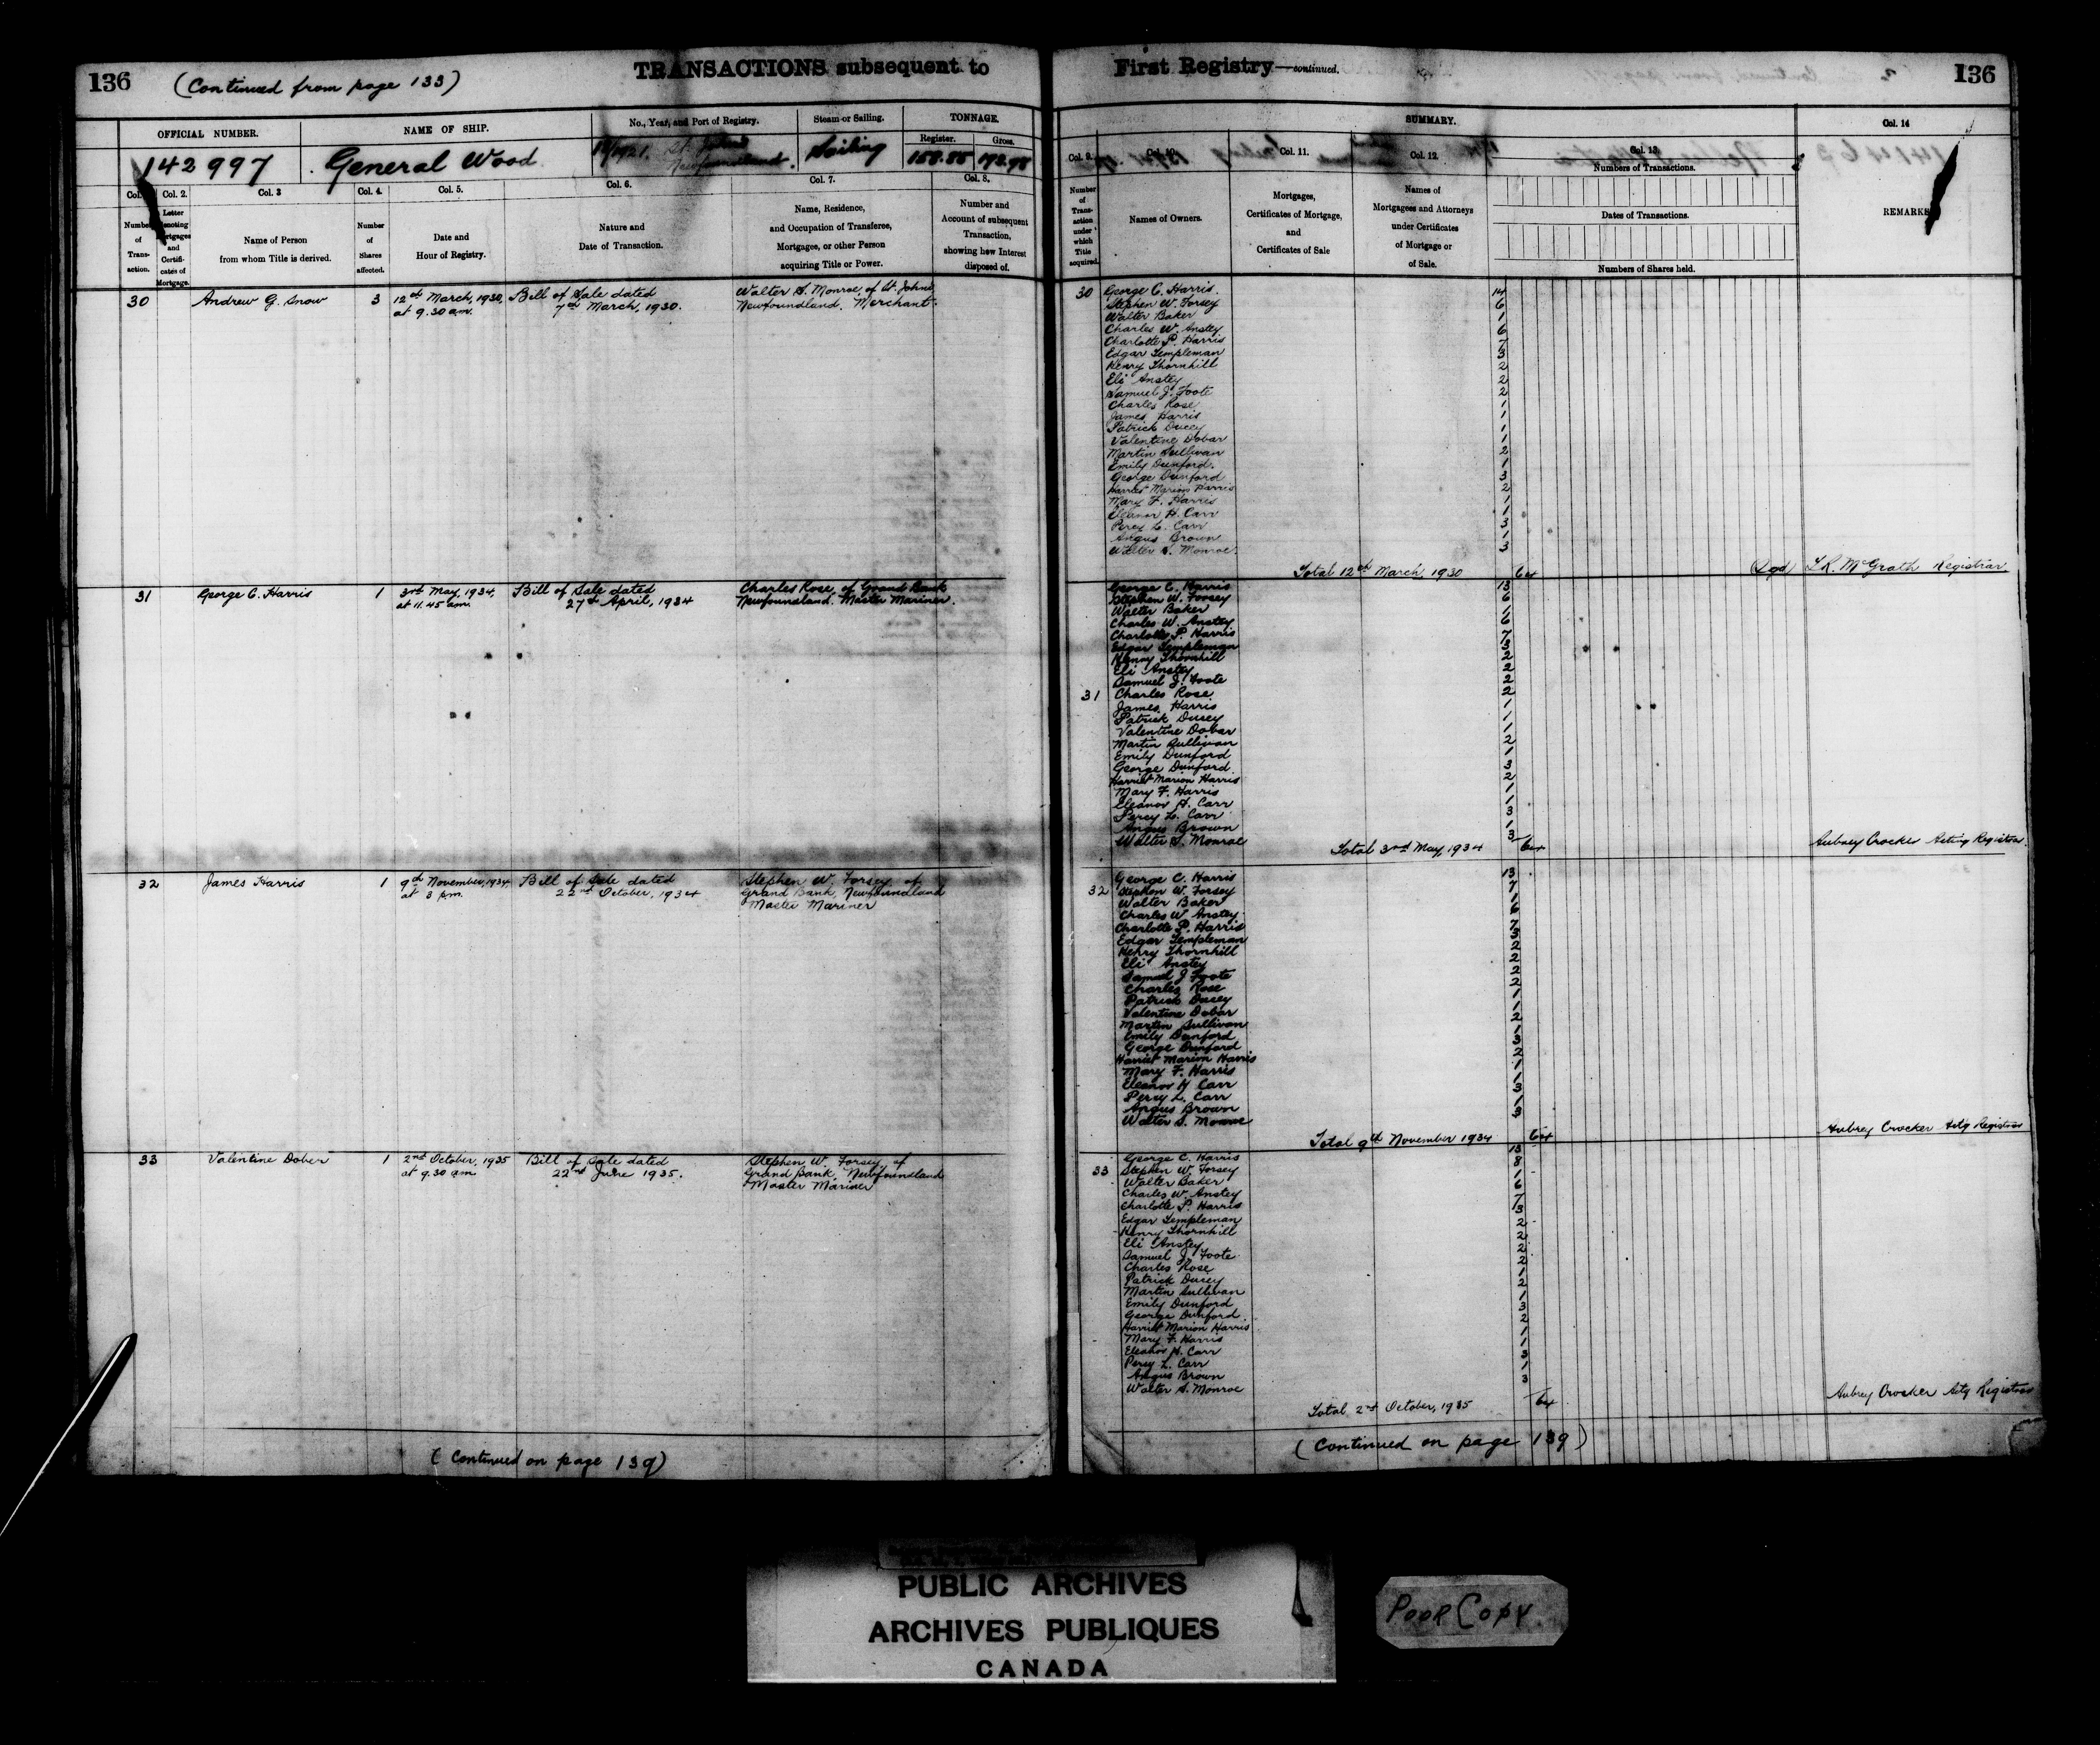 136
(Continued from page 133)
TRANSACTIONS subsequent to
First Registry—continued.
136
OFFICIAL NUMBER.
NAME OF SHIP.
No., Year, and Port of Registry.
Steam or Sailing.
TONNAGE.
Register.
Gross.
142997
General Wood
/1921. St. Johns
Newfoundland.
Sailing
158.85
192.98
Col.
Number of Transaction.
Col. 2.
Letter denoting Mortgages and Certificates of Mortgage.
Col. 3
Name of Person
from whom Title is derived.
Col. 4.
Number of Shares affected.
Col. 5.
Date and
Hour of Registry.
Col. 6.
Nature and
Date of Transaction.
Col. 7.
Name, Residence,
and Occupation of Transferee,
Mortgagee, or other Person
acquiring Title or Power.
Col. 8.
Number and
Account of subsequent
Transaction,
showing how Interest
disposed of.
SUMMARY.
Col. 9.
Number of Transaction under which Title acquired.
Col. 10.
Names of Owners.
Col. 11.
Mortgages,
Certificates of Mortgage,
and
Certificates of Sale
Col. 12.
Names of
Mortgagees and Attorneys
under Certificates
of Mortgage or
of Sale.
Col. 13.
Numbers of Transactions.
Dates of Transactions.
Numbers of Shares held.
Col. 14
REMARKS
30
Andrew G. Snow
3
12th March, 1930,
at 9.30 a.m.
Bill of Sale dated
7th March, 1930.
Walter S. Monroe, of St. Johns,
Newfoundland. Merchant.
30
George C. Harris. 14
Stephen W. Forsey 6
Walter Baker 1
Charles W. Anstey 6
Charlotte P. Harris 7
Edgar Templeman 3
Henry Thornhill 2
Eli Anstey 2
Samuel J. Foote 2
Charles Rose 1
James Harris 1
Patrick Ducey 1
Valentine Dobar 1
Martin Sullivan 2
Emily Dunford. 1
George Dunford 3
Harriet Marion Harris 2
Mary F. Harris 1
Eleanor H. Carr 1
Percy L. Carr 3
Angus Brown 1
Walter S. Monroe. 3
Total 12th March, 1930 64
Sgd L.R. McGrath Registrar
31
George C. Harris
1
3rd May, 1934,
at 11.45 a.m.
Bill of Sale dated
27th April, 1934
Charles Rose, of Grand Bank
Newfoundland. Master Mariner.
George C. Harris 13
Stephen W. Forsey 6
Walter Baker 1
Charles W. Anstey 6
Charlotte P. Harris 7
Edgar Templeman 3
Henry Thornhill 2
Eli Anstey 2
Samuel J. Foote 2
31 Charles Rose 2
James Harris 1
Patrick Ducey 1
Valentine Dobar 1
Martin Sullivan 2
Emily Dunford 1
George Dunford 3
Harriet Marion Harris 2
Mary F. Harris 1
Eleanor H. Carr 1
Percy L. Carr 3
Angus Brown 1
Walter S. Monroe 3
Total 3rd May, 1934 64
Aubrey Crocker Acting Registrar.
32
James Harris
1
9th November, 1934
at 3 p.m.
Bill of Sale dated
22nd October, 1934
Stephen W. Forsey, of
Grand Bank, Newfoundland
Master Mariner
George C. Harris 13
32 Stephen W. Forsey 7
Walter Baker 1
Charles W. Anstey 6
Charlotte P. Harris 7
Edgar Templeman 3
Henry Thornhill 2
Eli Anstey 2
Samuel J Foote 2
Charles Rose 2
Patrick Ducey 1
Valentine Dobar 1
Martin Sullivan 2
Emily Dunford 1
George Dunford 3
Harriet Marion Harris 2
Mary F. Harris 1
Eleanor H Carr 1
Percy L. Carr 3
Angus Brown 1
Walter S. Monroe 3
Total 9th November 1934 64
Aubrey Crocker Actg Registrar
33
Valentine Dober
1
2nd October, 1935
at 9.30 a.m
Bill of Sale dated
22nd June 1935.
Stephen W. Forsey, of
Grand Bank, Newfoundland
Master Mariner
George C. Harris 13
33 Stephen W. Forsey 8
Walter Baker 1
Charles W. Anstey 6
Charlotte P. Harris 7
Edgar Templeman 3
Henry Thornhill 2
Eli Anstey 2
Samuel J. Foote 2
Charles Rose 2
Patrick Ducey 1
Martin Sullivan 2
Emily Dunford 1
George Dunford. 3
Harriet Marion Harris 2
Mary F. Harris 1
Eleanor H. Carr 1
Percy L. Carr 3
Angus Brown 1
Walter S. Monroe 3
Total 2nd October, 1935 64
Aubrey Crocker Actg Registrar
(Continued on page 139)
(Continued on page 139)
PUBLIC ARCHIVES
ARCHIVES PUBLIQUES
CANADA
POOR COPY.